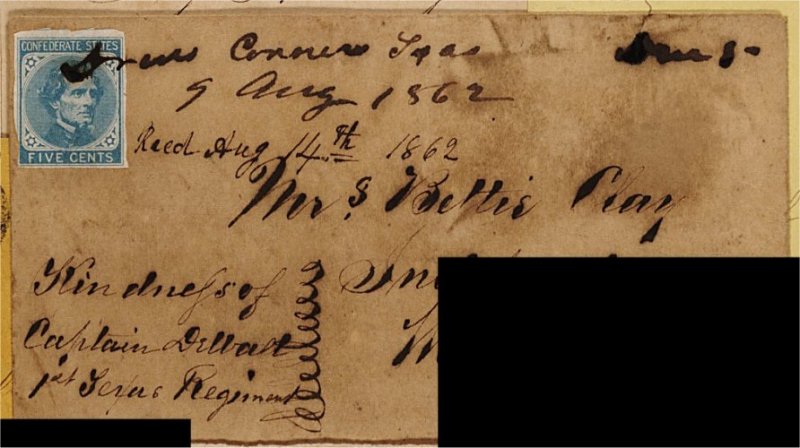 CONFEDERATE STATES
FIVE CENTS
Conners Texas
9 Aug 1862
Recd Aug 14th 1862
Mrs. Bettie Clay
Kindness of
Captain Dewalt
1st Texas Regiment